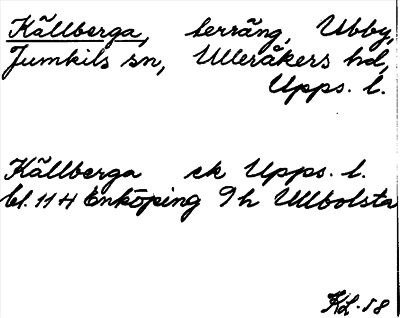 Källberga, terräng, Ubby,
Jumkils sn, Ulleråkers hd,
Upps. l.
Källberga ek Upps. l.
bl. 114 Enköping 9h Ullbolsta
KL-58